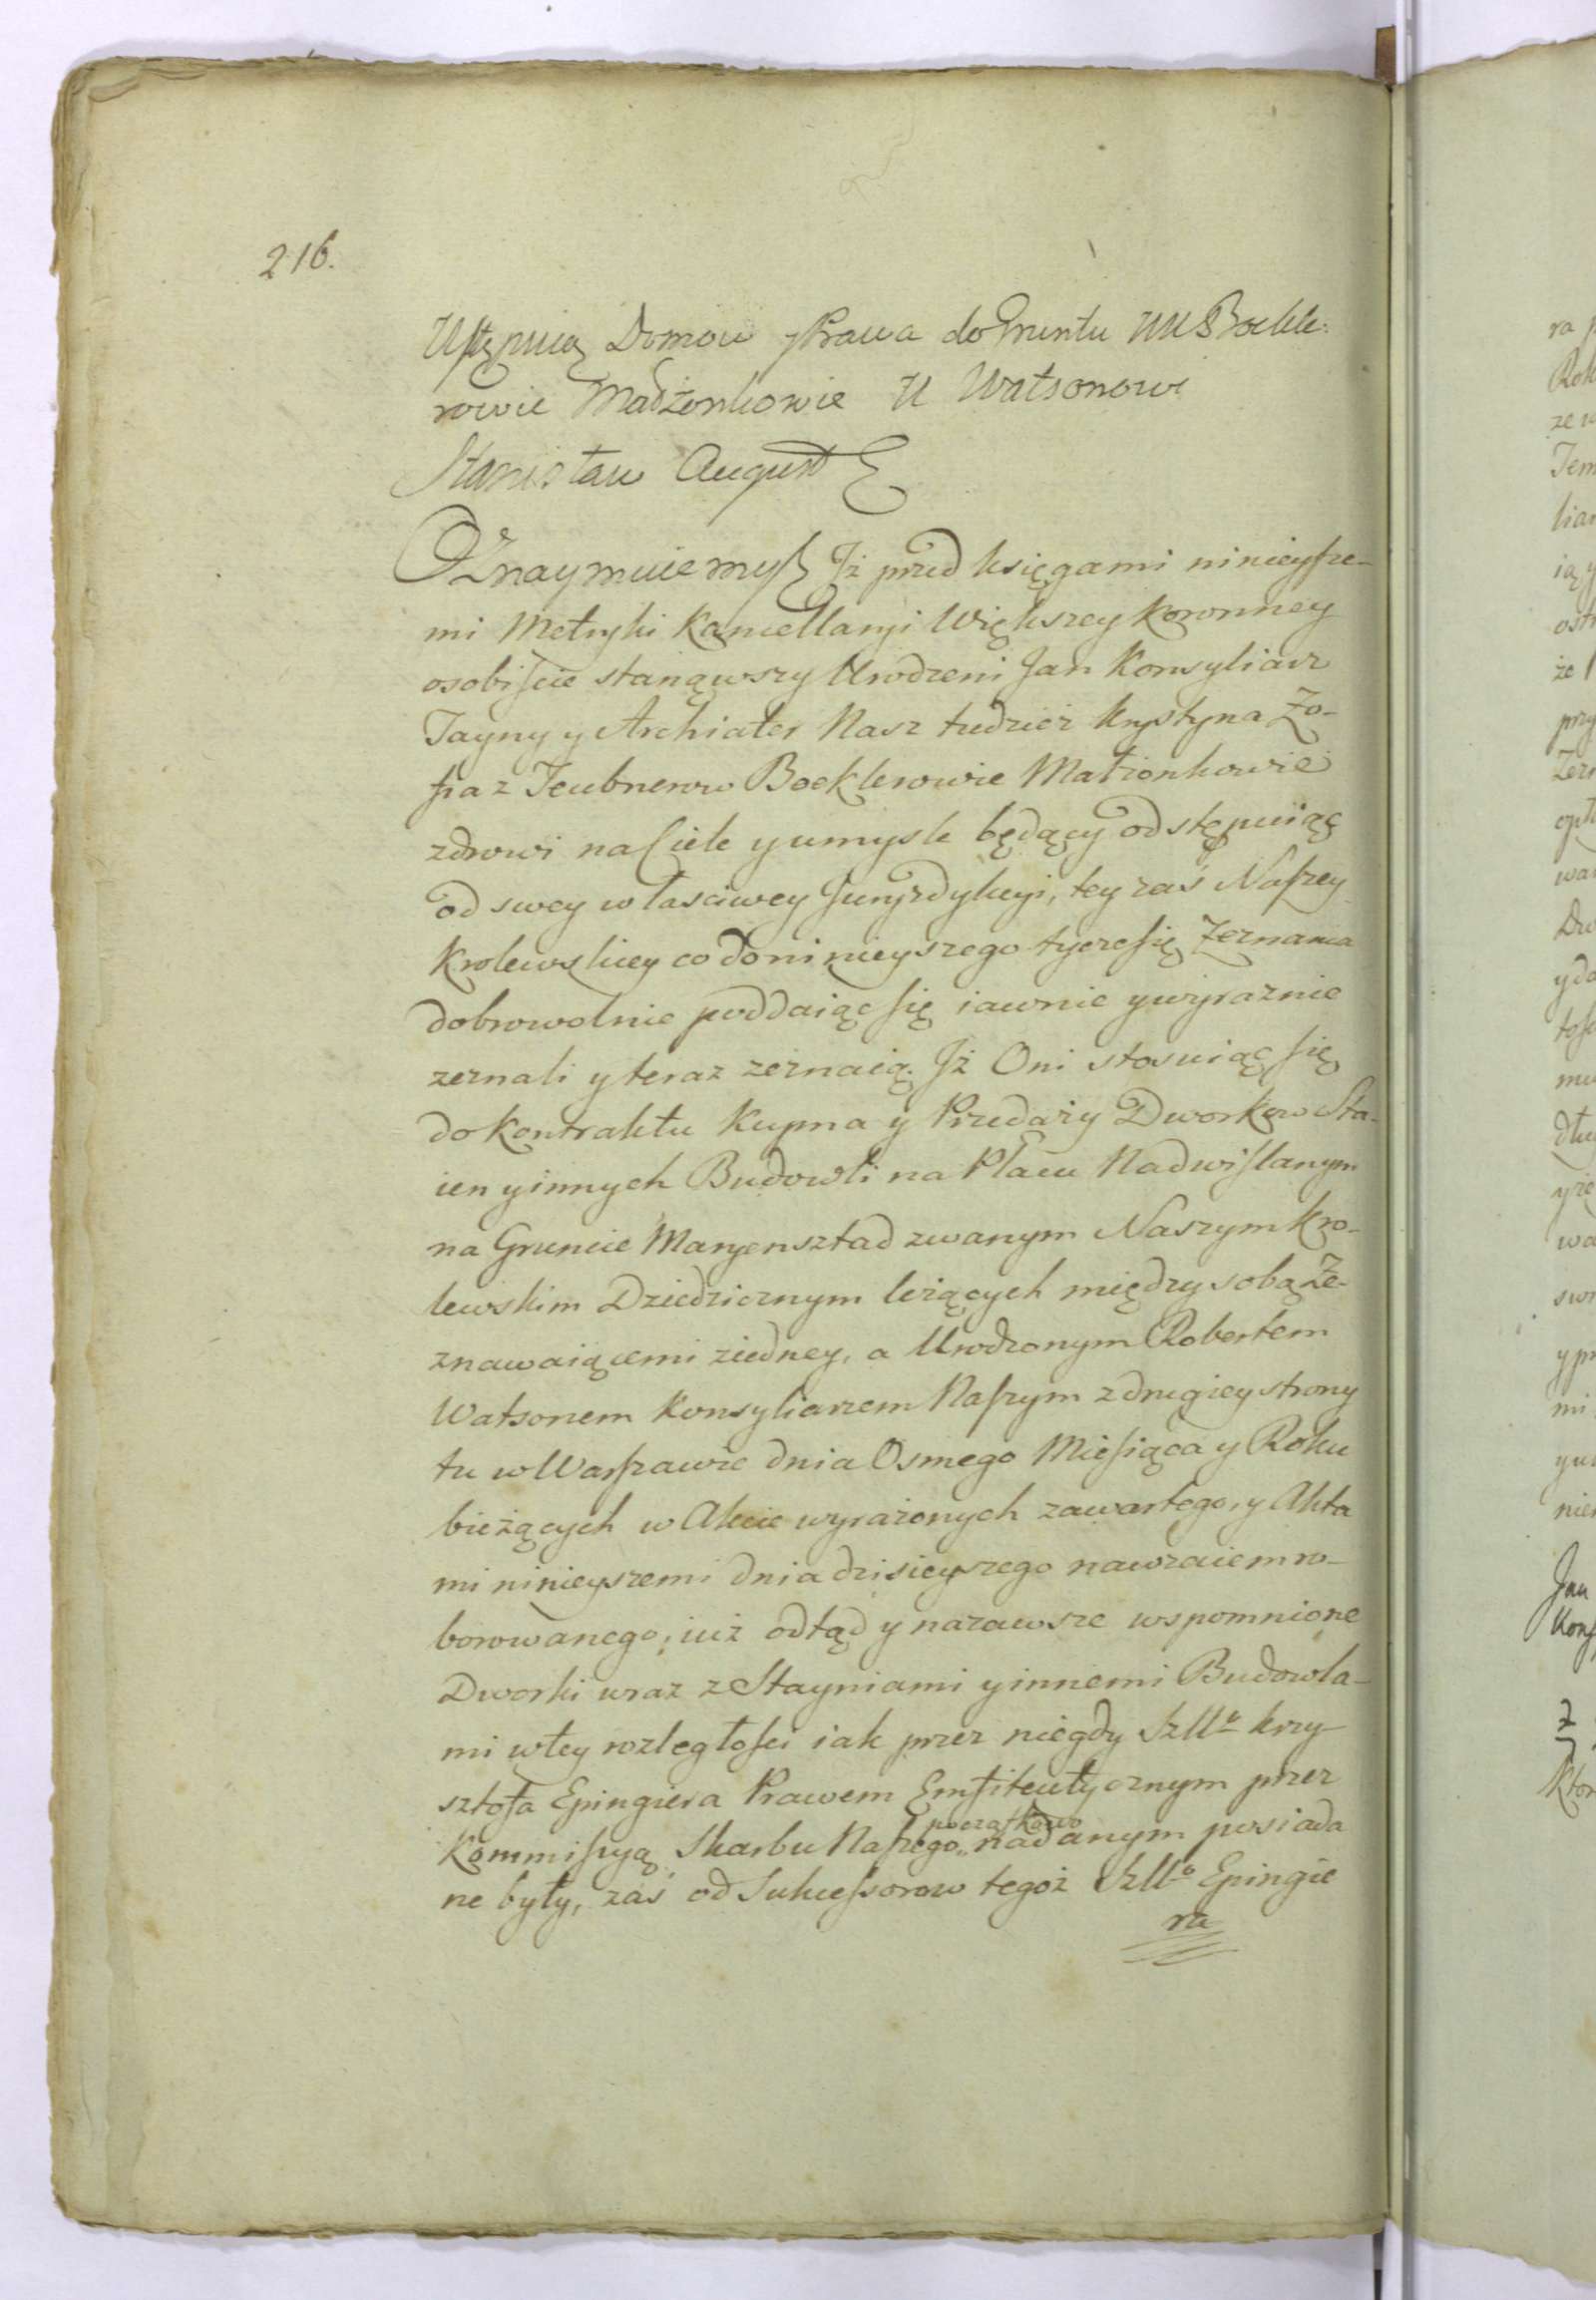 216.
Ustępuią Domow y Prawa do Gruntu UU Boekle:
rowie Małżonkowie U Watsonowi
Stanisław August
Oznaymuiemy Jż przed księgami ninieysze-
mi Metryki Kancellaryi Większey Koronney
osobiście stanąwszy Urodzeni Jan Konsyliarz
Tayny y Archiater Nasz tudzież Krystyna Zo-
fia z Teubnerow Boeklerowie Małżonkowie
zdrowi na Ciele y umysle będący odstępuiąc
od swey własciwey Juryzdykcyi, tey zaś Naszey
Krolewskiey co do ninieyszego tycze się Zeznania
dobrowolnie poddaiąc się iawnie y wyraznie
zeznali y teraz zeznaią. Jż Oni stosuiąc się
do Kontraktu Kupna y Przedaży Dworkow Sta-
ien y innych Budowli na Placu Nadwiślanym
na Gruncie Maryensztad zwanym Naszym Kro-
lewskim Dziedzicznym leżących między sobą Ze-
znawaiącemi z iedney, a Urodzonym Robertem
Watsonem Konsyliarzem Naszym z drugiey strony
tu w Warszawie dnia Osmego Miesiąca y Roku
bieżących w Akcie wyrażonych zawartego, y Akta
mi ninieyszemi dnia dzisieyszego nawzaiem ro-
borowanego; iuż odtąd y nazawsze wspomnione
Dworki wraz z Stayniami y innemi Budowla-
mi w tey rozległości iak przez niegdy Szllo Krzy
sztofa Epingiera Prawem Emfiteutycznym przez
Kommissyą Skarbu Naszego początkowo nadanym posiada
ne były, zaś od Sukcessorow tegoż Szllo Epingie
ra